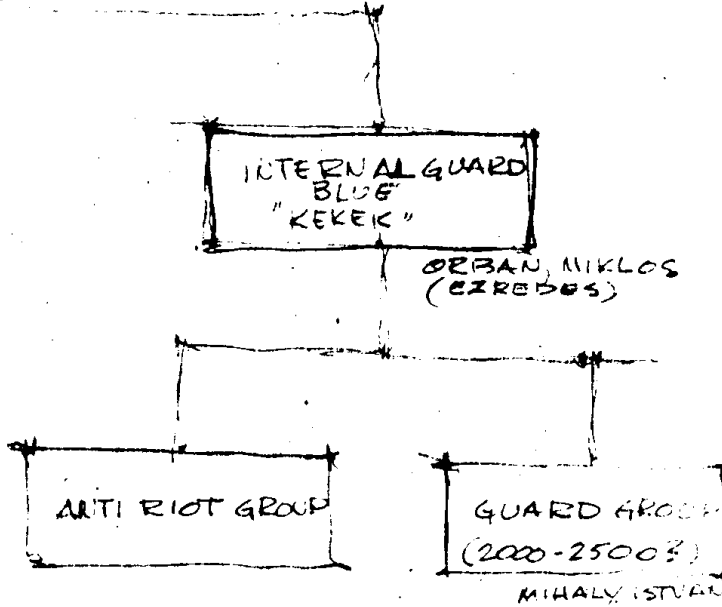 INTERNAL GUARD
BLUE
"KEKEK"
ORBAN, MIKLOS
(EZREDES)
ANTI RIOT GROUP
GUARD GROUP
(2000-2500?)
MIHALY ISTVAN